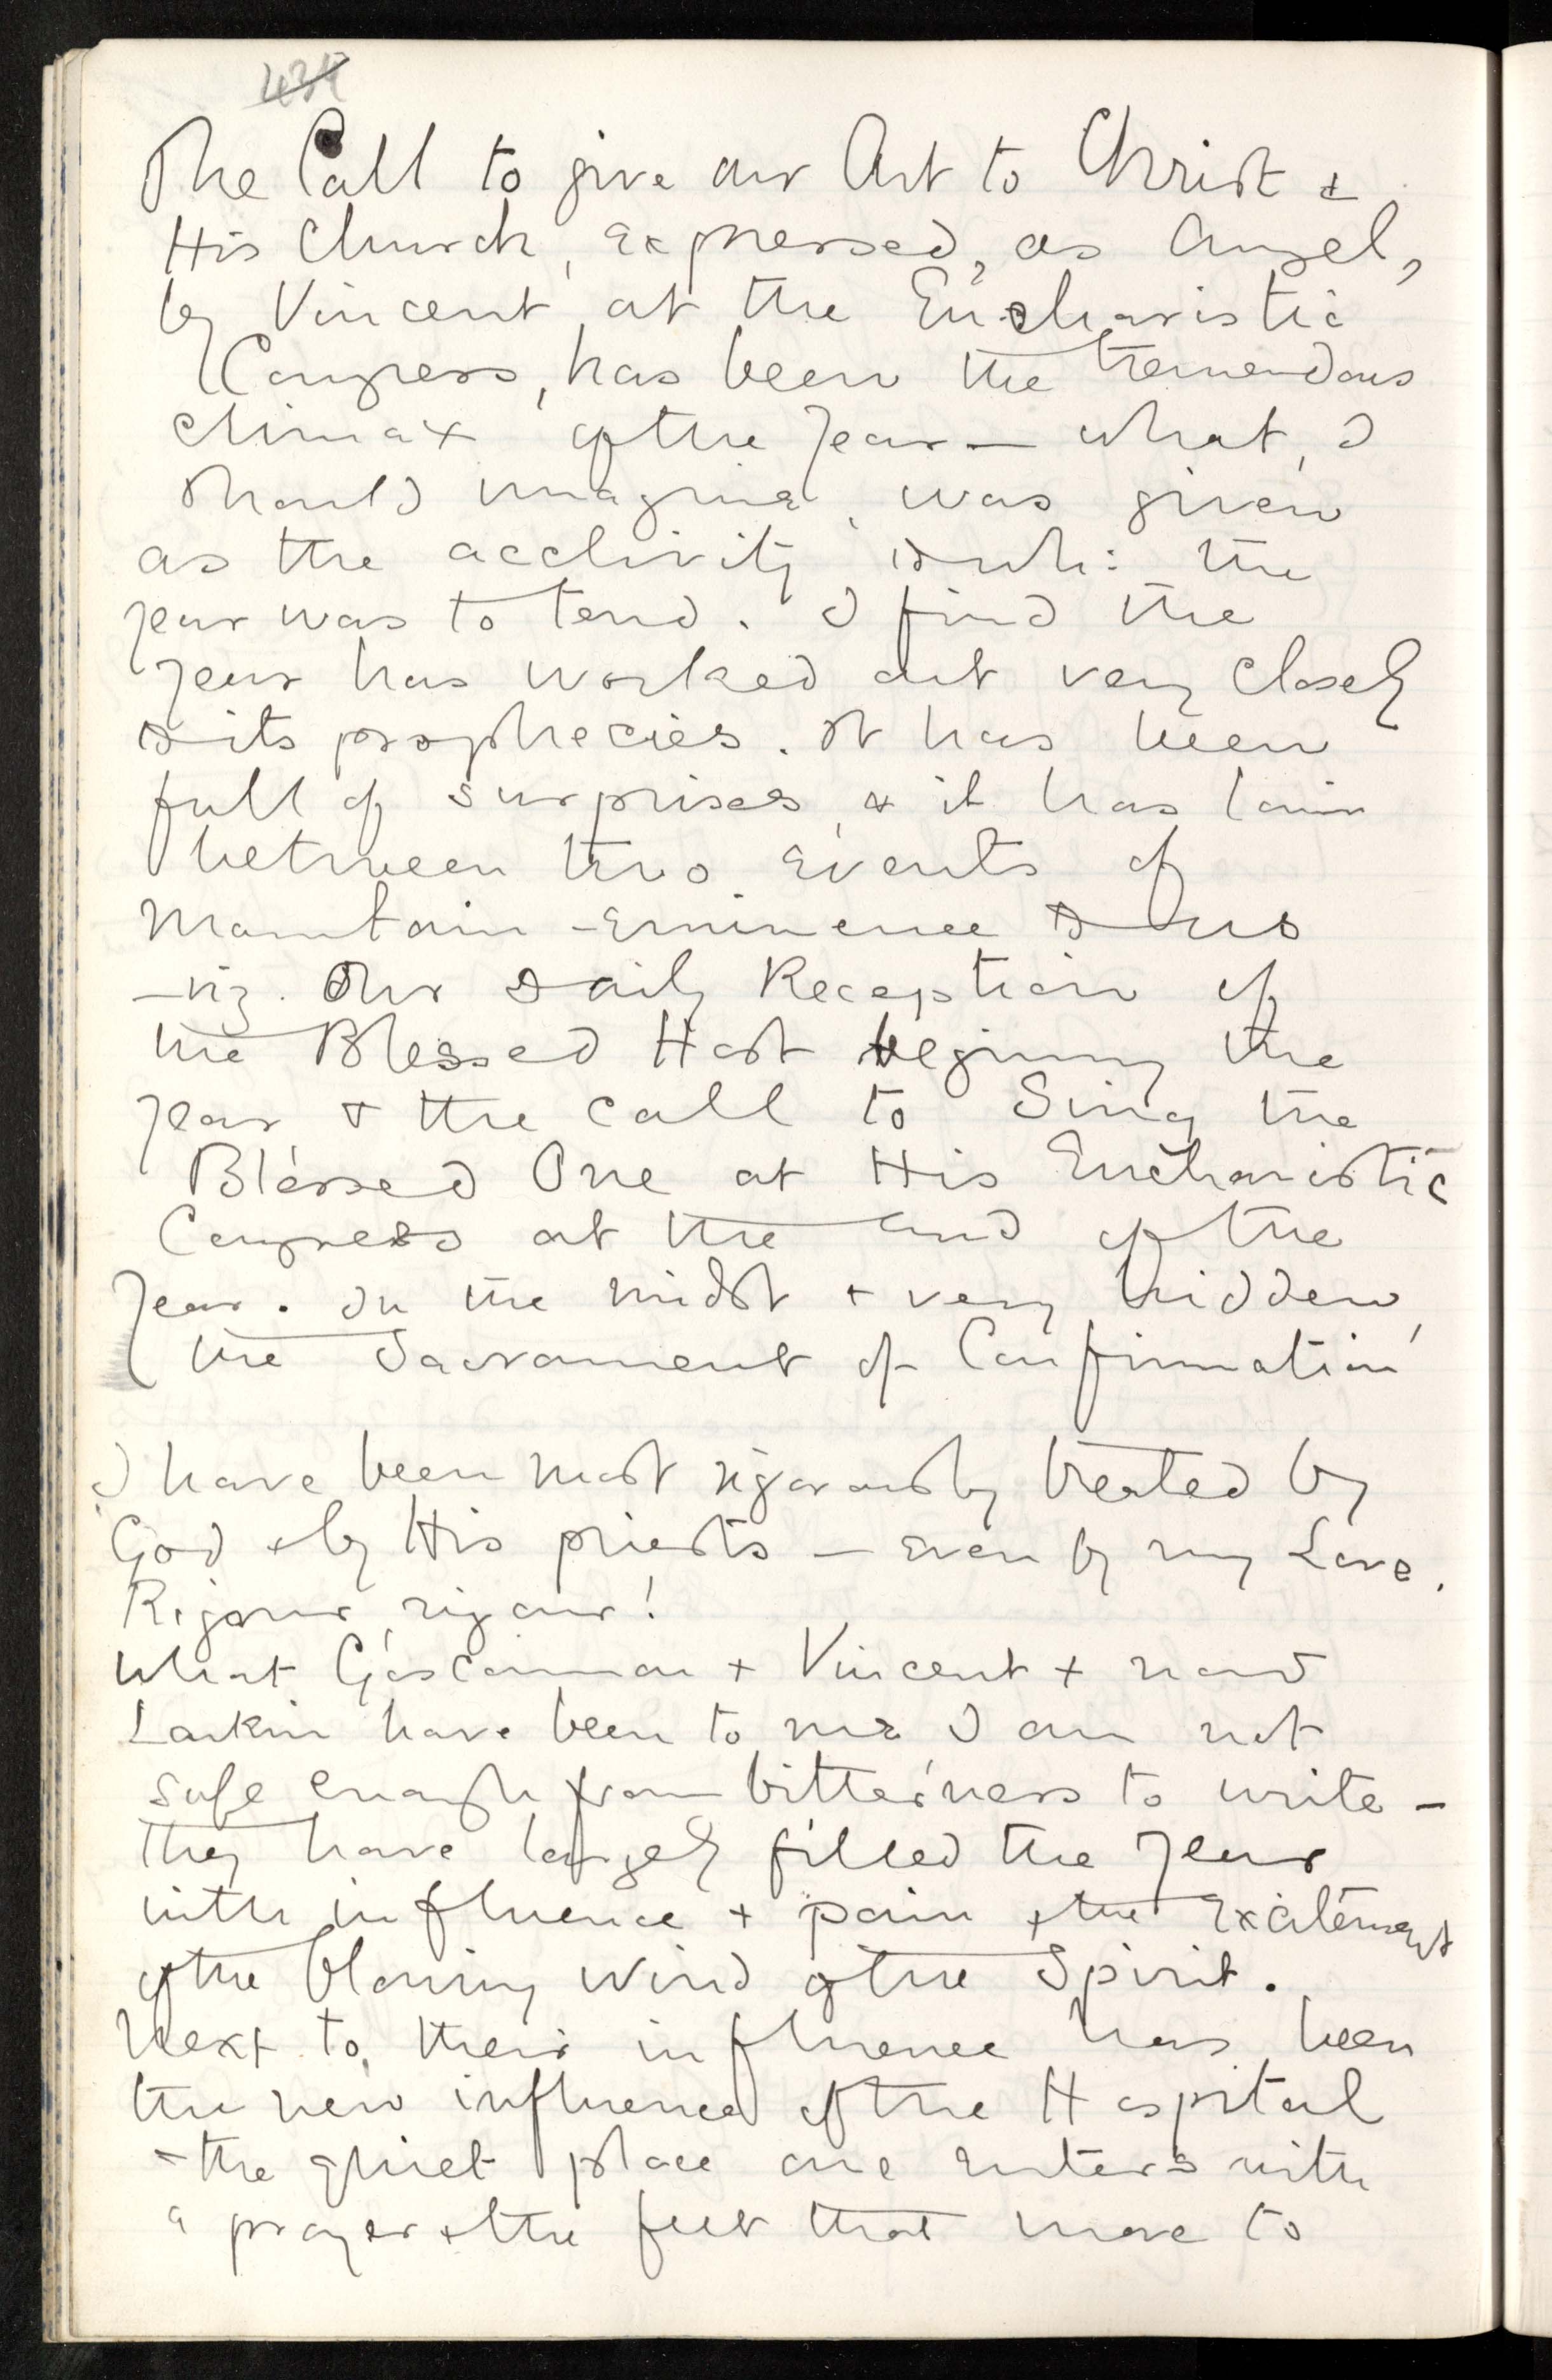 The Call to give our Art to Christ &
His Church, expressed, as Angel,
by Vincent at the Eucharistic
Congress, has been the tremendous
climax of the Year — what, I
should imagine, was given
as the acclivity to wh: the
year was to tend. I find the
year has worked out very closely
to its prophecies. It has been
full of surprises, & it has lain
between two events of
Mountain-eminence to us
– viz. Our daily Reception of
the Blessed Host beginning the
year & the call to Sing the
Blessed One at His Eucharistic
Congress at the end of the
Year. In the midst & very hidden,
the Sacrament of Confirmation
I have been most rigorously treated by
God & by His priests — even by my Love.
Rigour, rigour!
What Goscannon & Vincent & now
Larkin have been to me I am not
safe enough from bitterness to write –
They have largely filled the Year
with influence & pain & the Excitement
of the blowing Wind of the Spirit.
Next to their influence has been
the new influence of the Hospital
- the quiet place one enters with
a prayer & the feet that move to